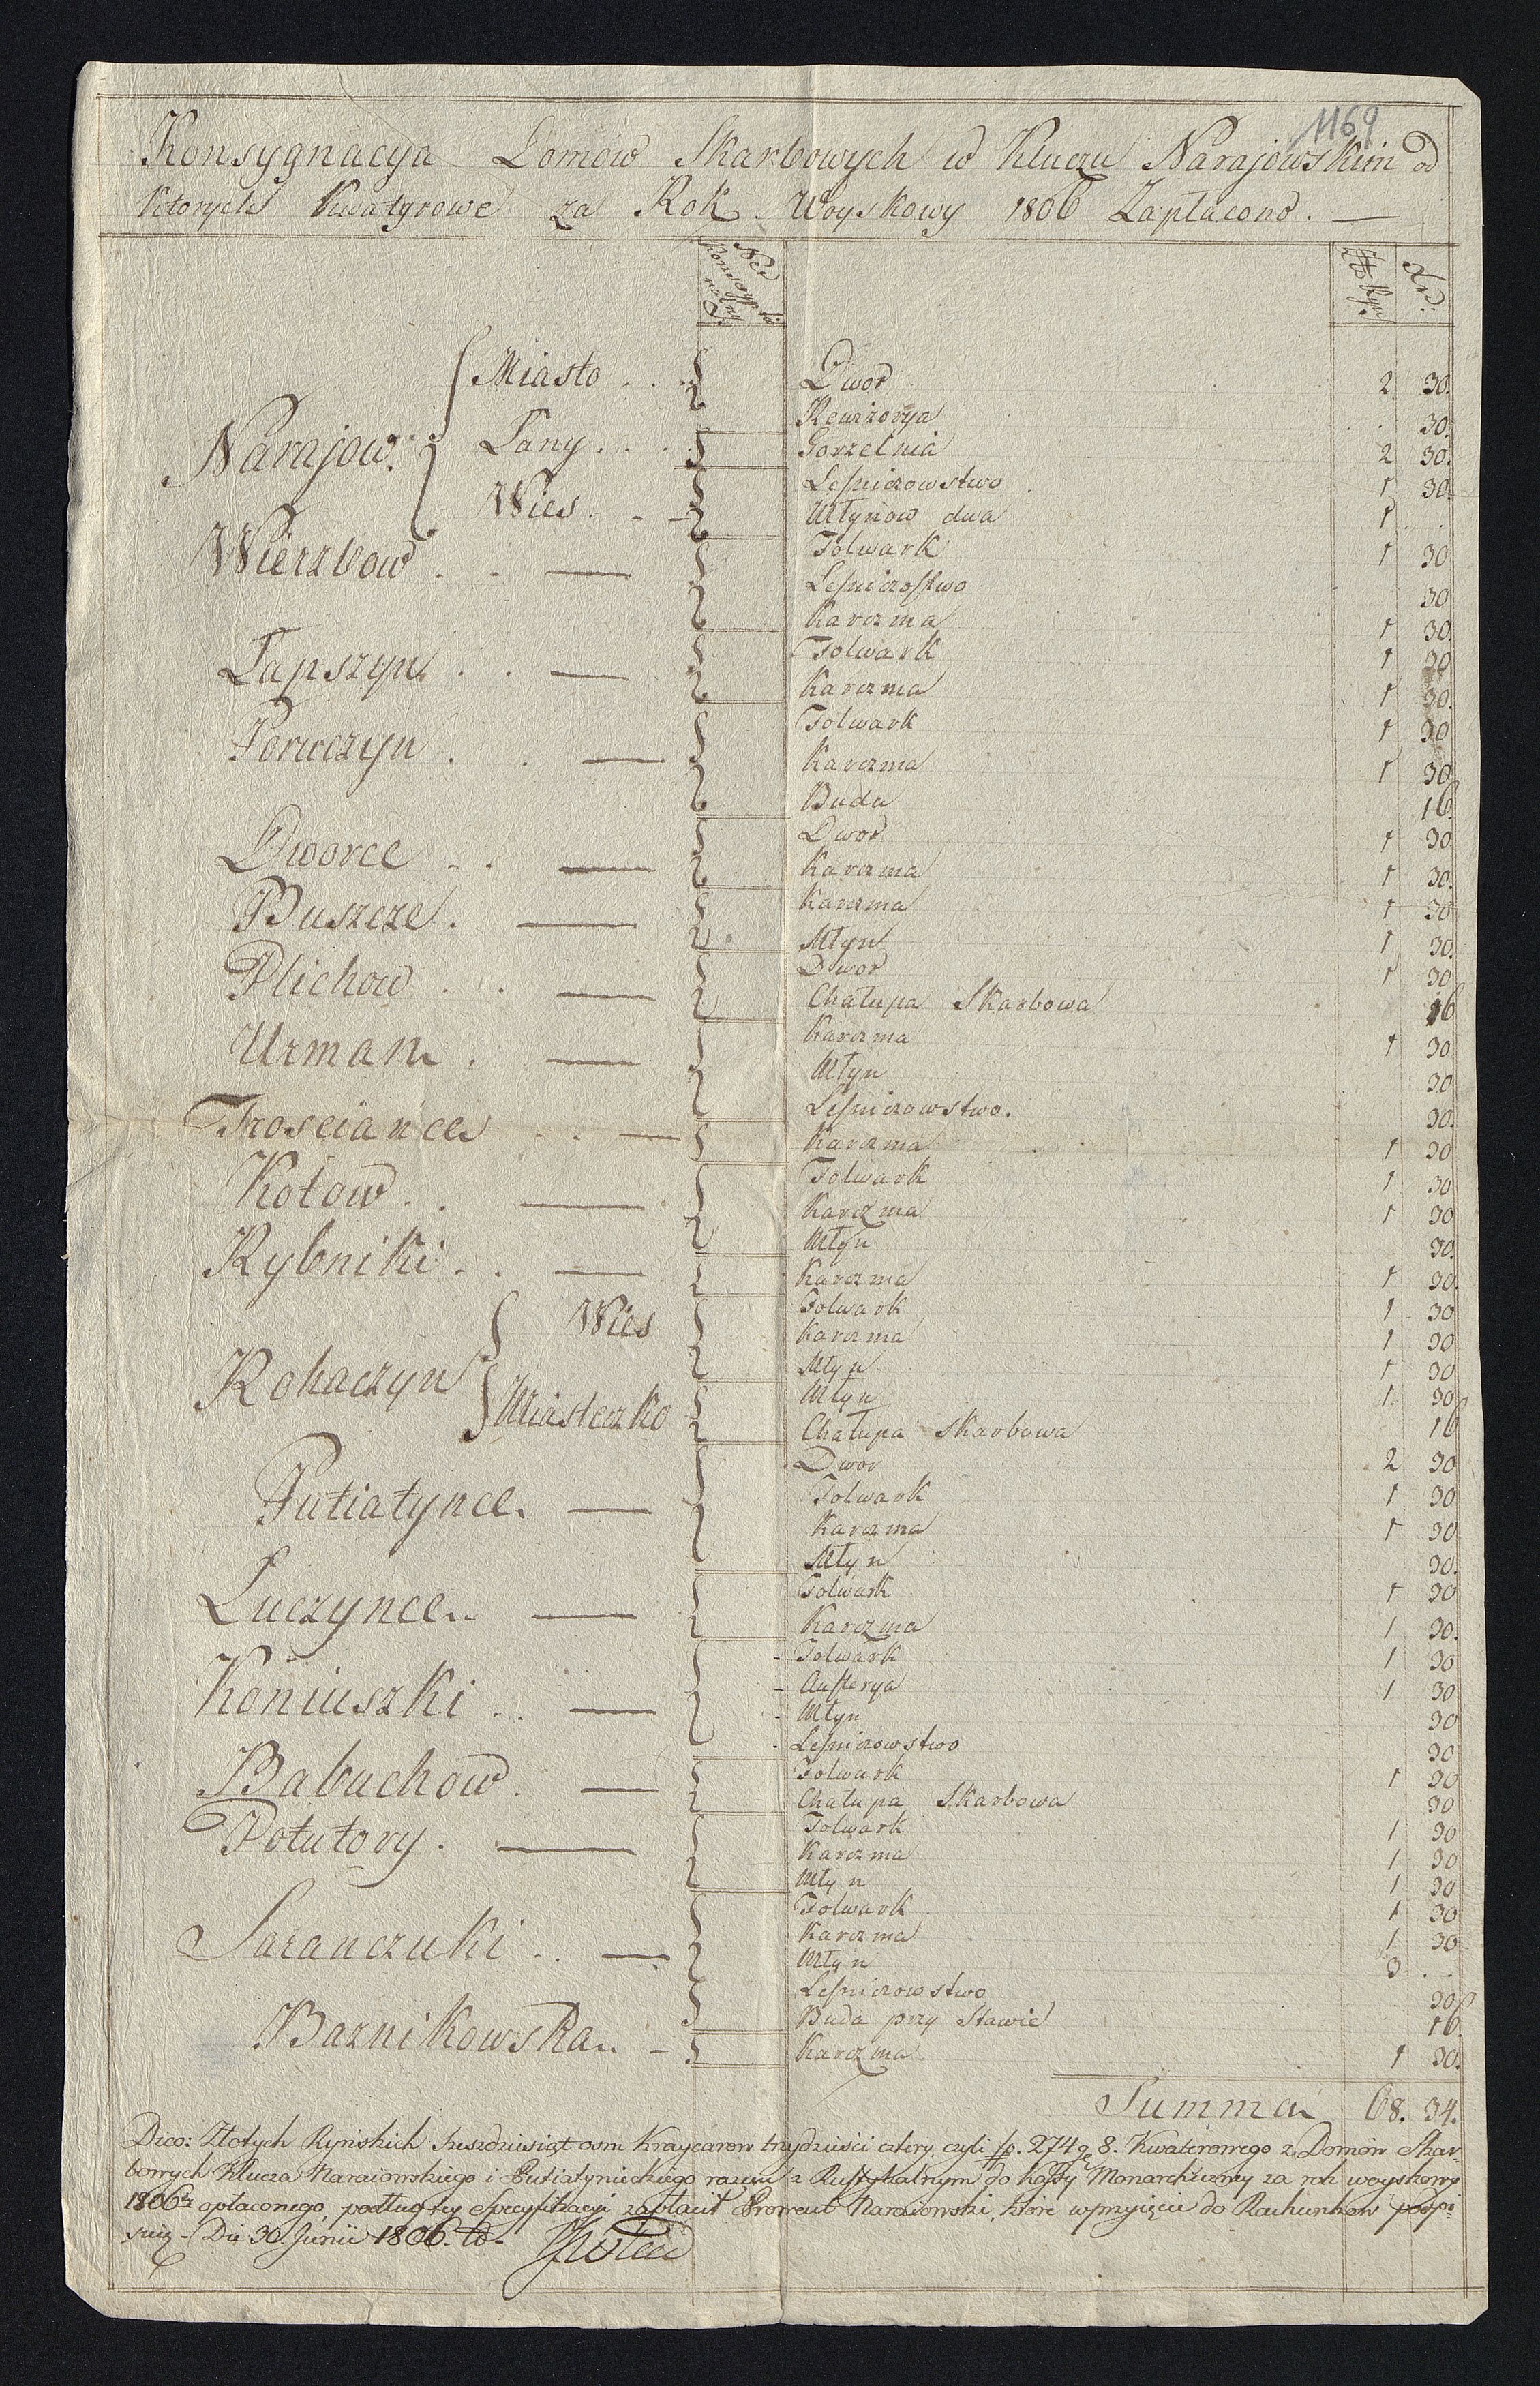 1169
Konsygnacya Domow Skarbowych w Kluczu Narajowskim od
ktorych kwatyrowe za Rok Woyskowy 1806 Zapłacono. —
Nro Konskrypcio nalny
Zło Ryn
Xr:
Narajow. Miasto
Dwor 2 30.
Rewizorya 30.
Łany
Gorzelnia 2 30.
Wies
Lesniczowstwo 1 30.
Młynow dwa 1
Wierzbow
Folwark 1 30
Lesniczostwo 30
Karczma 1 30.
Łapszyn
Folwark 1 30
Karczma 1 30.
Poruczyn
Folwark 1 30
Karczma 1 30
Buda 16.
Dworce
Dwor 1 30
Karczma 1 30.
Buszcze
Karczma 1 30
Młyn 1 30.
Plichow
Dwor 1 30
Chałupa Skarbowa 16
Urman
Karczma 1 30
Młyn 30
Lesniczowstwo. 30.
Trosciance
Karczma 1 30
Kotow
Folwark 1 30
Karczma 1 30
Młyn 30.
Rybniki
Karczma 1 30.
Rohaczyn Wies
Folwark 1 30
Karczma 1 30
Młyn 1 30
Miasteczko
Młyn 1. 30
Chałupa skarbowa 16
Putiatynce.
Dwor 2 30
Folwark 1 30
Karczma 1 30
Młyn 30.
Luczynce
Folwark 1 30
Karczma 1 30.
Koniuszki
Folwark 1 30
Austerya 1 30
Młyn 30
Lesniczowstwo 30
Babuchow.
Folwark 1 30
Chałupa Skarbowa 30
Potutory.
Folwark 1 30
Karczma 1 30
Młyn 1 30
Saranczuki
Folwark 1 30
Karczma 1 30
Młyn 3
Lesniczowstwo 30
Buda przy Stawie 16.
Baznikowska
Karczma 1 30.
Summa 68. 34.
Dico: Złotych Ryńskich Szesdziesiąt osm Kraycarow trzydziesci cztery, czyli fp. 274 g 8. Kwaterowego z Domow Skar-
bowych Klucza Naraiowskiego i Putiatynieckiego razem z Rustykalnym do Kassy Monarchiczney za rok woyskowy
1806 opłaconego, podług tey specyfikacyi zapłacił Prowent Naraiowski, ktore wprzyięcie do Rachunkow podpi-
suię - Die 30. Junii 1806.